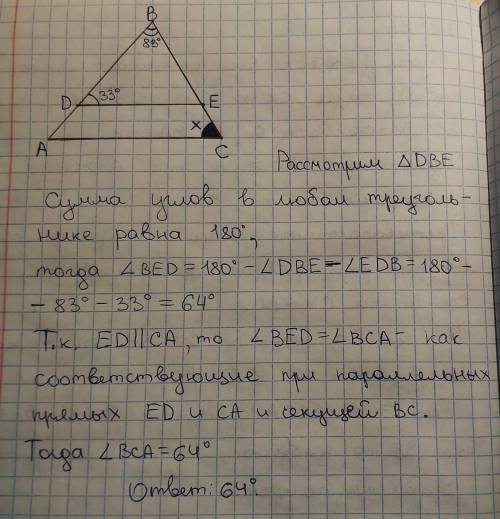 B
83°
D 33° E
x
A C
Рассмотрим △DBE
Сумма углов в любом треуголь-
нике равна 180°,
тогда ∠BED = 180° - ∠DBE - ∠EDB = 180° -
- 83° - 33° = 64°
Т.к. ED||CA, то ∠BED = ∠BCA - как
соответствующие при параллельных
прямых ED и CA и секущей BC.
Тогда ∠BCA = 64°
Ответ: 64°.